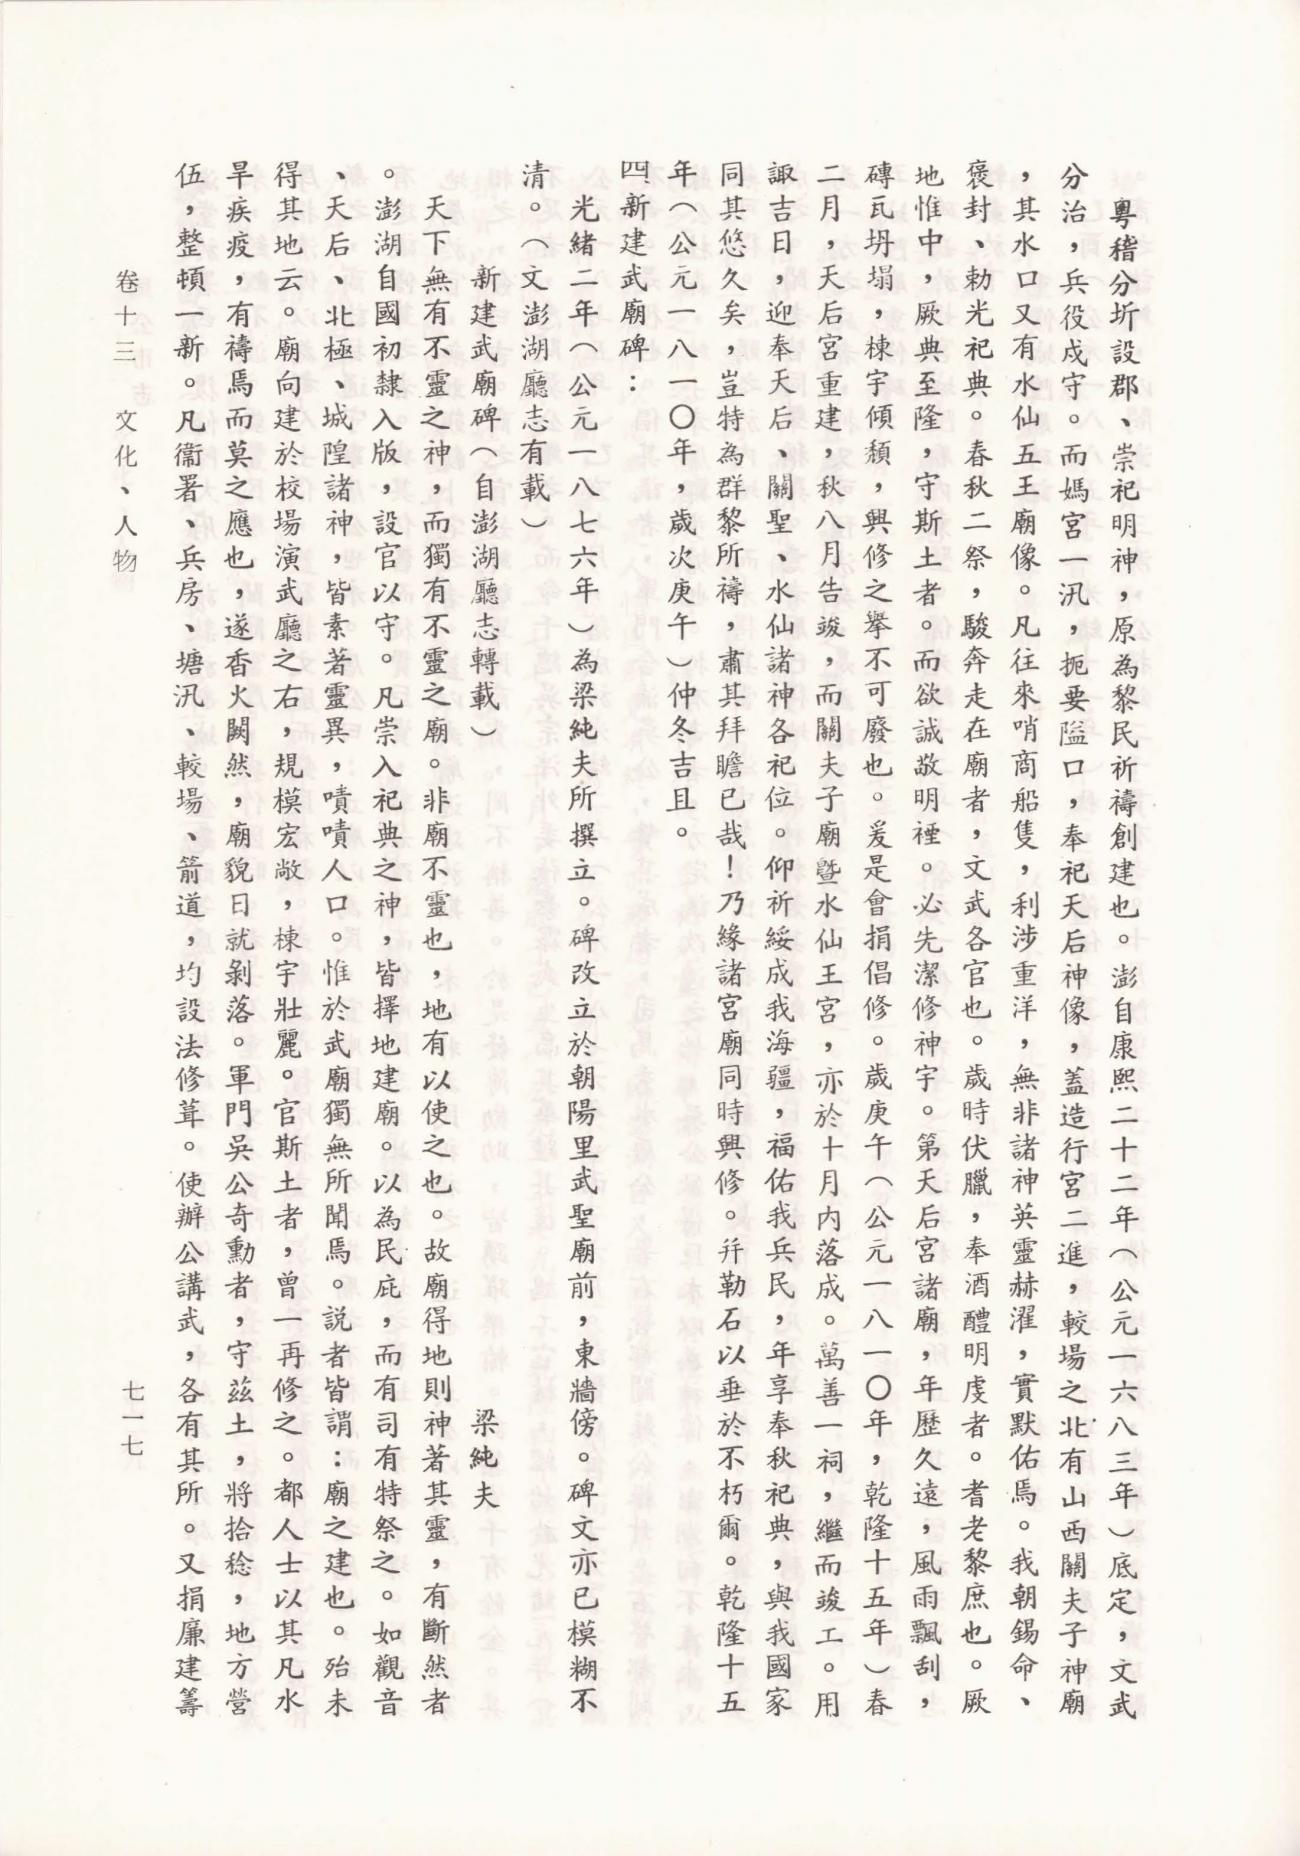 粵稽分圻設郡、崇祀明神，原為黎民祈禱創建也。澎自康熙二十二年（公元一六八三年）底定，文武
分治，兵役戍守。而媽宮一汛，扼要隘口，奉祀天后神像，蓋造行宮二進，較場之北有山西關夫子神廟
，其水口又有水仙五王廟像。凡往來哨商船隻，利涉重洋，無非諸神英靈赫濯，實默佑焉。我朝錫命、
褒封、勅光祀典。春秋二祭，駿奔走在廟者，文武各官也。歲時伏臘，奉酒醴明虔者。耆老黎庶也。厥
地惟中，厥典至隆，守斯土者。而欲誠敬明禋。必先潔修神宇。第天后宮諸廟，年歷久遠，風雨飄刮，
磚瓦坍塌，棟宇傾頹，興修之舉不可廢也。爰是會捐倡修。歲庚午（公元一八一〇年，乾隆十五年）春
二月，天后宮重建，秋八月告竣，而關夫子廟暨水仙王宮，亦於十月內落成。萬善一祠，繼而竣工。用
諏吉日，迎奉天后、關聖、水仙諸神各祀位。仰祈綏成我海疆，福佑我兵民，年享奉秋祀典，與我國家
同其悠久矣，豈特為群黎所禱，肅其拜瞻已哉！乃緣諸宮廟同時興修。幷勒石以垂於不朽爾。乾隆十五
年（公元一八一〇年，歲次庚午）仲冬吉且。
四新建武廟碑：
光緒二年（公元一八七六年）為梁純夫所撰立。碑改立於朝陽里武聖廟前，東牆傍。碑文亦已模糊不
清。（文澎湖廳志有載）
新建武廟碑（自澎湖廳志轉載）　梁純夫
天下無有不靈之神，而獨有不靈之廟。非廟不靈也，地有以使之也。故廟得地則神著其靈，有斷然者
。澎湖自國初隸入版，設官以守。凡崇入祀典之神，皆擇地建廟。以為民庇，而有司有特祭之。如觀音
、天后、北極、城隍諸神，皆素著靈異，嘖嘖人口。惟於武廟獨無所聞焉。說者皆謂：廟之建也。殆未
得其地云。廟向建於校場演武廳之右，規模宏敞，棟宇壯麗。官斯土者，曾一再修之。都人士以其凡水
旱疾疫，有禱焉而莫之應也，遂香火闕然，廟貌日就剝落。軍門吳公奇勳者，守茲土，將拾稔，地方營
伍，整頓一新。凡衙署、兵房、塘汛、較場、箭道，圴設法修葺。使辦公講武，各有其所。又捐廉建籌
卷十三　文化、人物
七一七